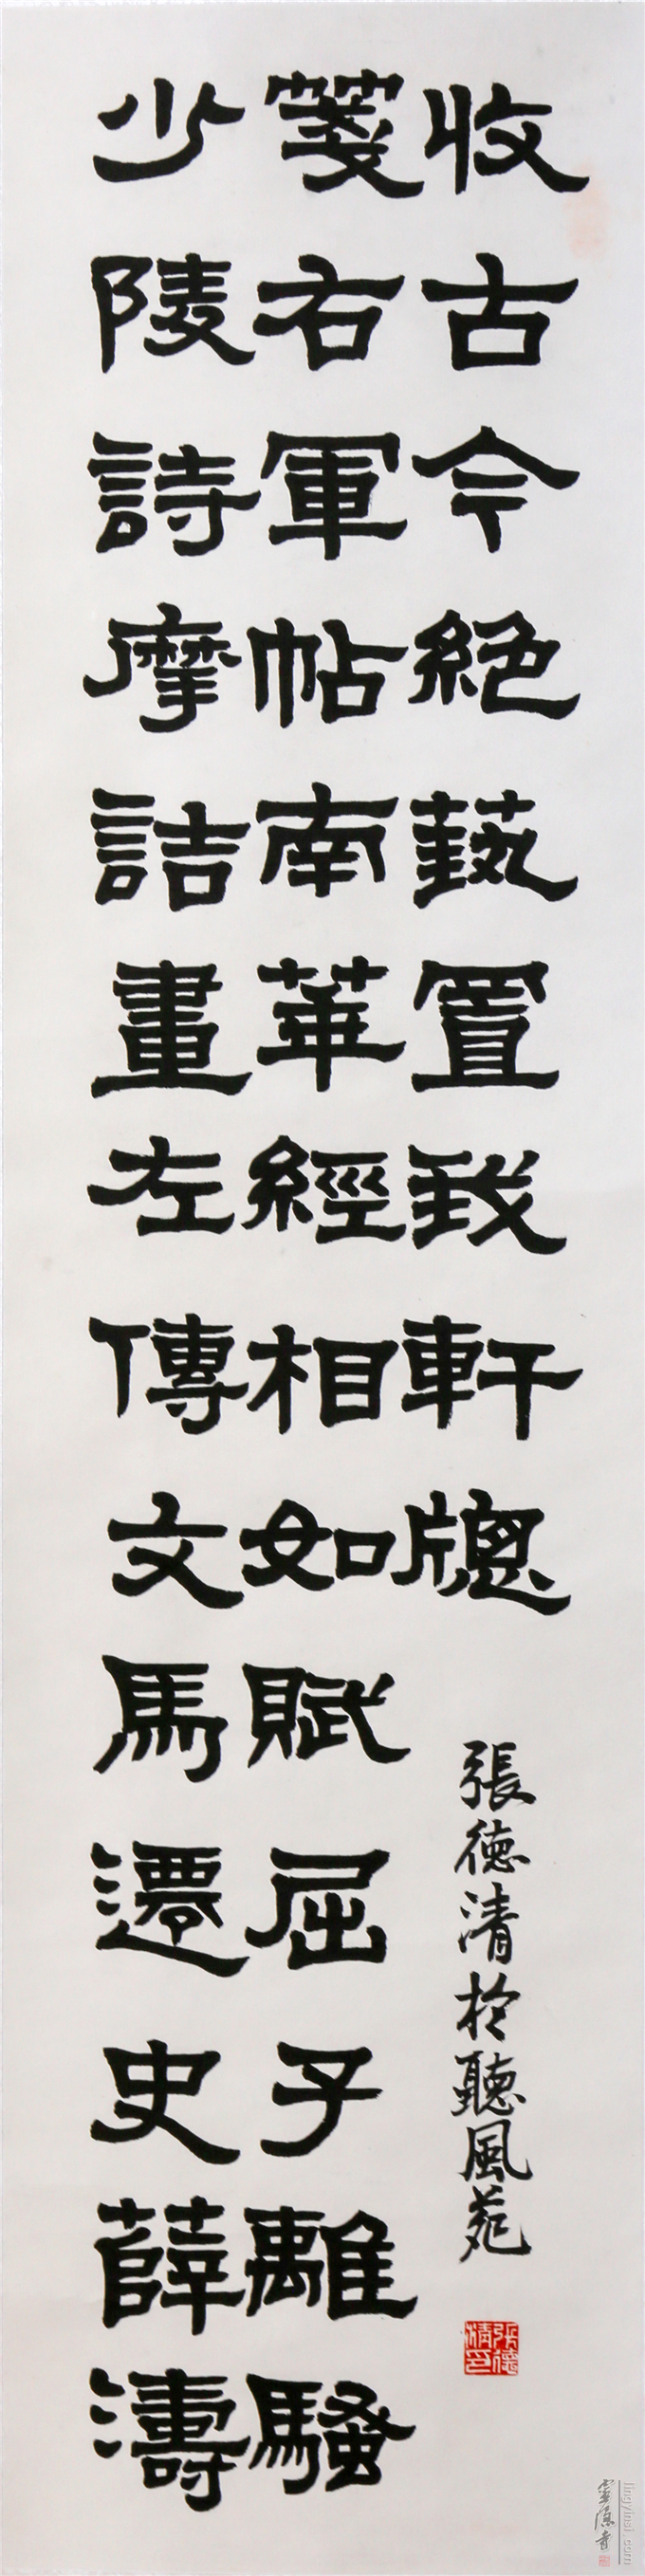 少陵詩摩詰畫左傳文馬遷史薛濤
箋右軍帖南華經相如賦屈子離騷
收古今絶蓺置我軒牕
張徳清於聽風苑
張德清印
lingyinsi.com